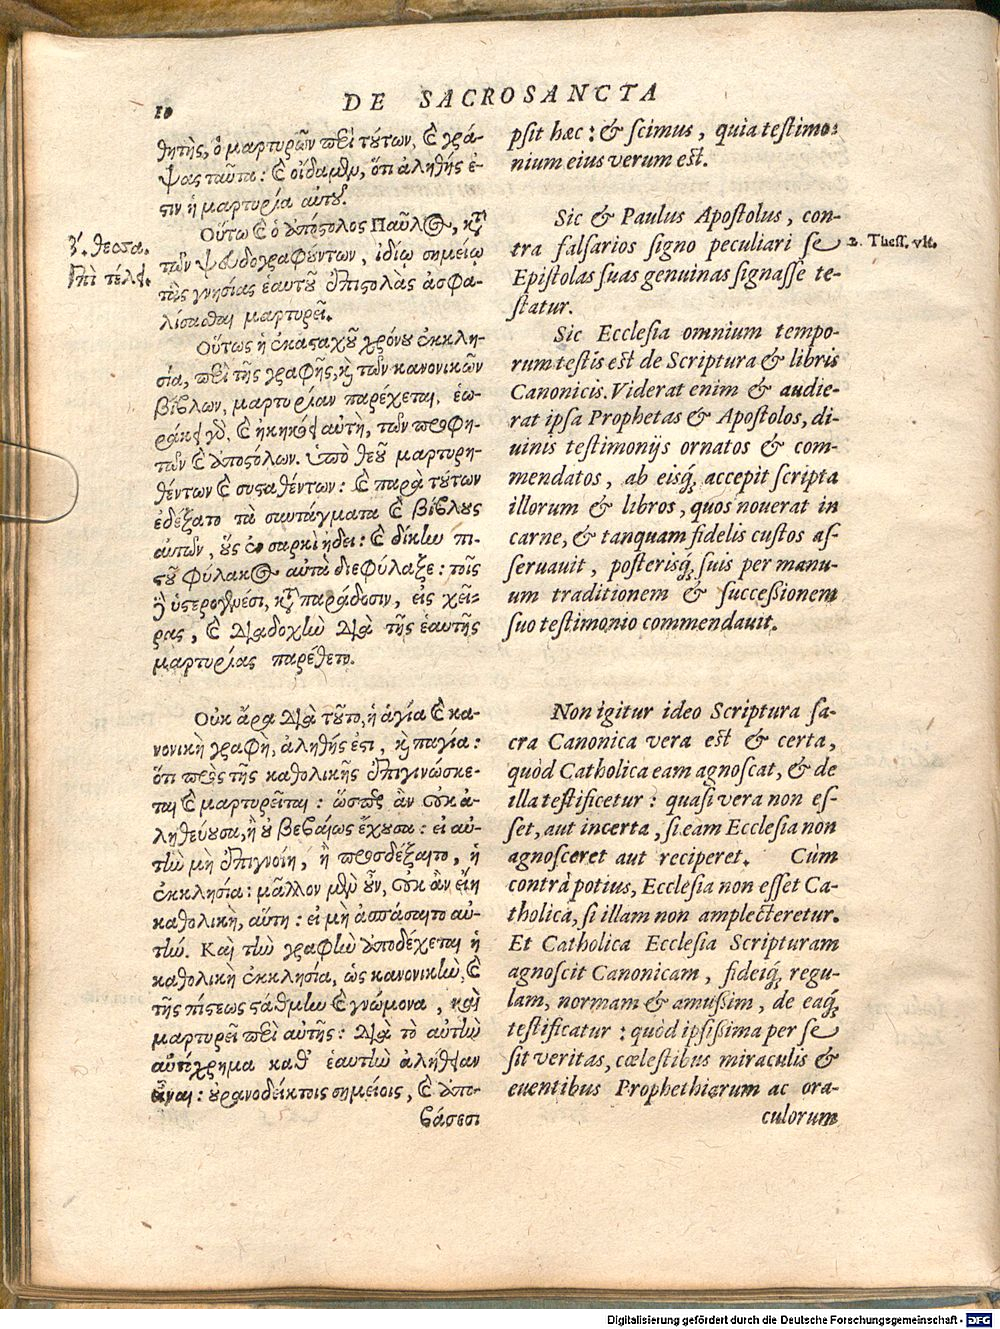 10
DE SACROSANCTA
θητὴς, ὁ μαρτυρῶν περὶ τούτων, καὶ γρά-
ψας ταῦτα: καὶ οἴδαμεν, ὅτι ἀληθής ἐ-
στιν ἡ μαρτυρία αὐτοῦ.
Οὕτω καὶ ὁ ἀπόστολος Παῦλος, κατὰ
τῶν ψευδογραφούντων, ἰδίῳ σημείῳ
τὰς γνησίας ἑαυτοῦ ἐπιστολὰς ἀσφα-
λίσασθαι μαρτυρεῖ.
Οὕτως ἡ ἑκασταχοῦ χρόνου ἐκκλη-
σία, περὶ τῆς γραφῆς, καὶ τῶν κανονικῶν
βίβλων, μαρτυρίαν παρέχεται. ἑω-
ράκει γὰρ καὶ ἠκηκόει αὐτὴ, τῶν προφη-
τῶν καὶ ἀποστόλων. ὑπὸ θεοῦ μαρτυρη-
θέντων καὶ συσταθέντων: καὶ παρὰ τούτων
ἐδέξατο τὰ συντάγματα καὶ βίβλους
αὐτῶν, οὓς ἐν σαρκὶ ᾔδει: καὶ δίκην πι-
στοῦ φύλακος αὐτὰ διεφύλαξε: τοῖς
δὲ ὑστερογενέσι, κατὰ παράδοσιν, εἰς χεῖ-
ρας, καὶ διαδοχὴν διὰ τῆς ἑαυτῆς
μαρτυρίας παρέθετο.
Οὐκ ἄρα διὰ τοῦτο, ἡ ἁγία καὶ κα-
νονικὴ γραφὴ, ἀληθής ἐστι, καὶ παγία:
ὅτι πρὸς τῆς καθολικῆς ἐπιγινώσκε-
ται καὶ μαρτυρεῖται: ὥσπερ ἂν οὐκ ἀ-
ληθεύουσα, ἢ οὐ βεβαίως ἔχουσα: εἰ αὐ-
τὴν μὴ ἐπιγνοίη, ἢ προσδέξαιτο, ἡ
ἐκκλησία: μᾶλλον μὲν οὖν, οὐκ ἂν εἴη
καθολικὴ, αὕτη: εἰ μὴ ἀσπάσαιτο αὐ-
τήν. Καὶ τὴν γραφὴν ὑποδέχεται ἡ
καθολικὴ ἐκκλησία, ὡς κανονικὴν, καὶ
τῆς πίστεως στάθμην καὶ γνώμονα, καὶ
μαρτυρεῖ περὶ αὐτῆς: διὰ τὸ αὐτὴν
αὐτόχρημα καθ' ἑαυτὴν ἀλήθειαν
εἶναι: οὐρανοδείκτοις σημείοις, καὶ ἀπο-
βάσεσι
β΄. θεσσα.
ἐπὶ τέλει.
psit hæc: & scimus, quia testimo-
nium eius verum est.
Sic & Paulus Apostolus, con-
tra falsarios signo peculiari se
Epistolas suas genuinas signasse te-
statur.
2. Thess. vlt.
Sic Ecclesia omnium tempo-
rum testis est de Scriptura & libris
Canonicis. Viderat enim & audie-
rat ipsa Prophetas & Apostolos, di-
uinis testimonijs ornatos & com-
mendatos, ab eisq́ accepit scripta
illorum & libros, quos nouerat in
carne, & tanquam fidelis custos as-
seruauit, posterisq́ suis per manu-
um traditionem & successionem
suo testimonio commendauit.
Non igitur ideo Scriptura sa-
cra Canonica vera est & certa,
quòd Catholica eam agnoscat, & de
illa testificetur: quasi vera non es-
set, aut incerta, si eam Ecclesia non
agnosceret aut reciperet. Cùm
contrà potius, Ecclesia non esset Ca-
tholica, si illam non amplecteretur.
Et Catholica Ecclesia Scripturam
agnoscit Canonicam, fideiq́ regu-
lam, normam & amussim, de eaq́
testificatur: quòd ipsissima per se
sit veritas, cælestibus miraculis &
euentibus Prophethiarum ac ora-
culorum
Digitalisierung gefördert durch die Deutsche Forschungsgemeinschaft - DFG